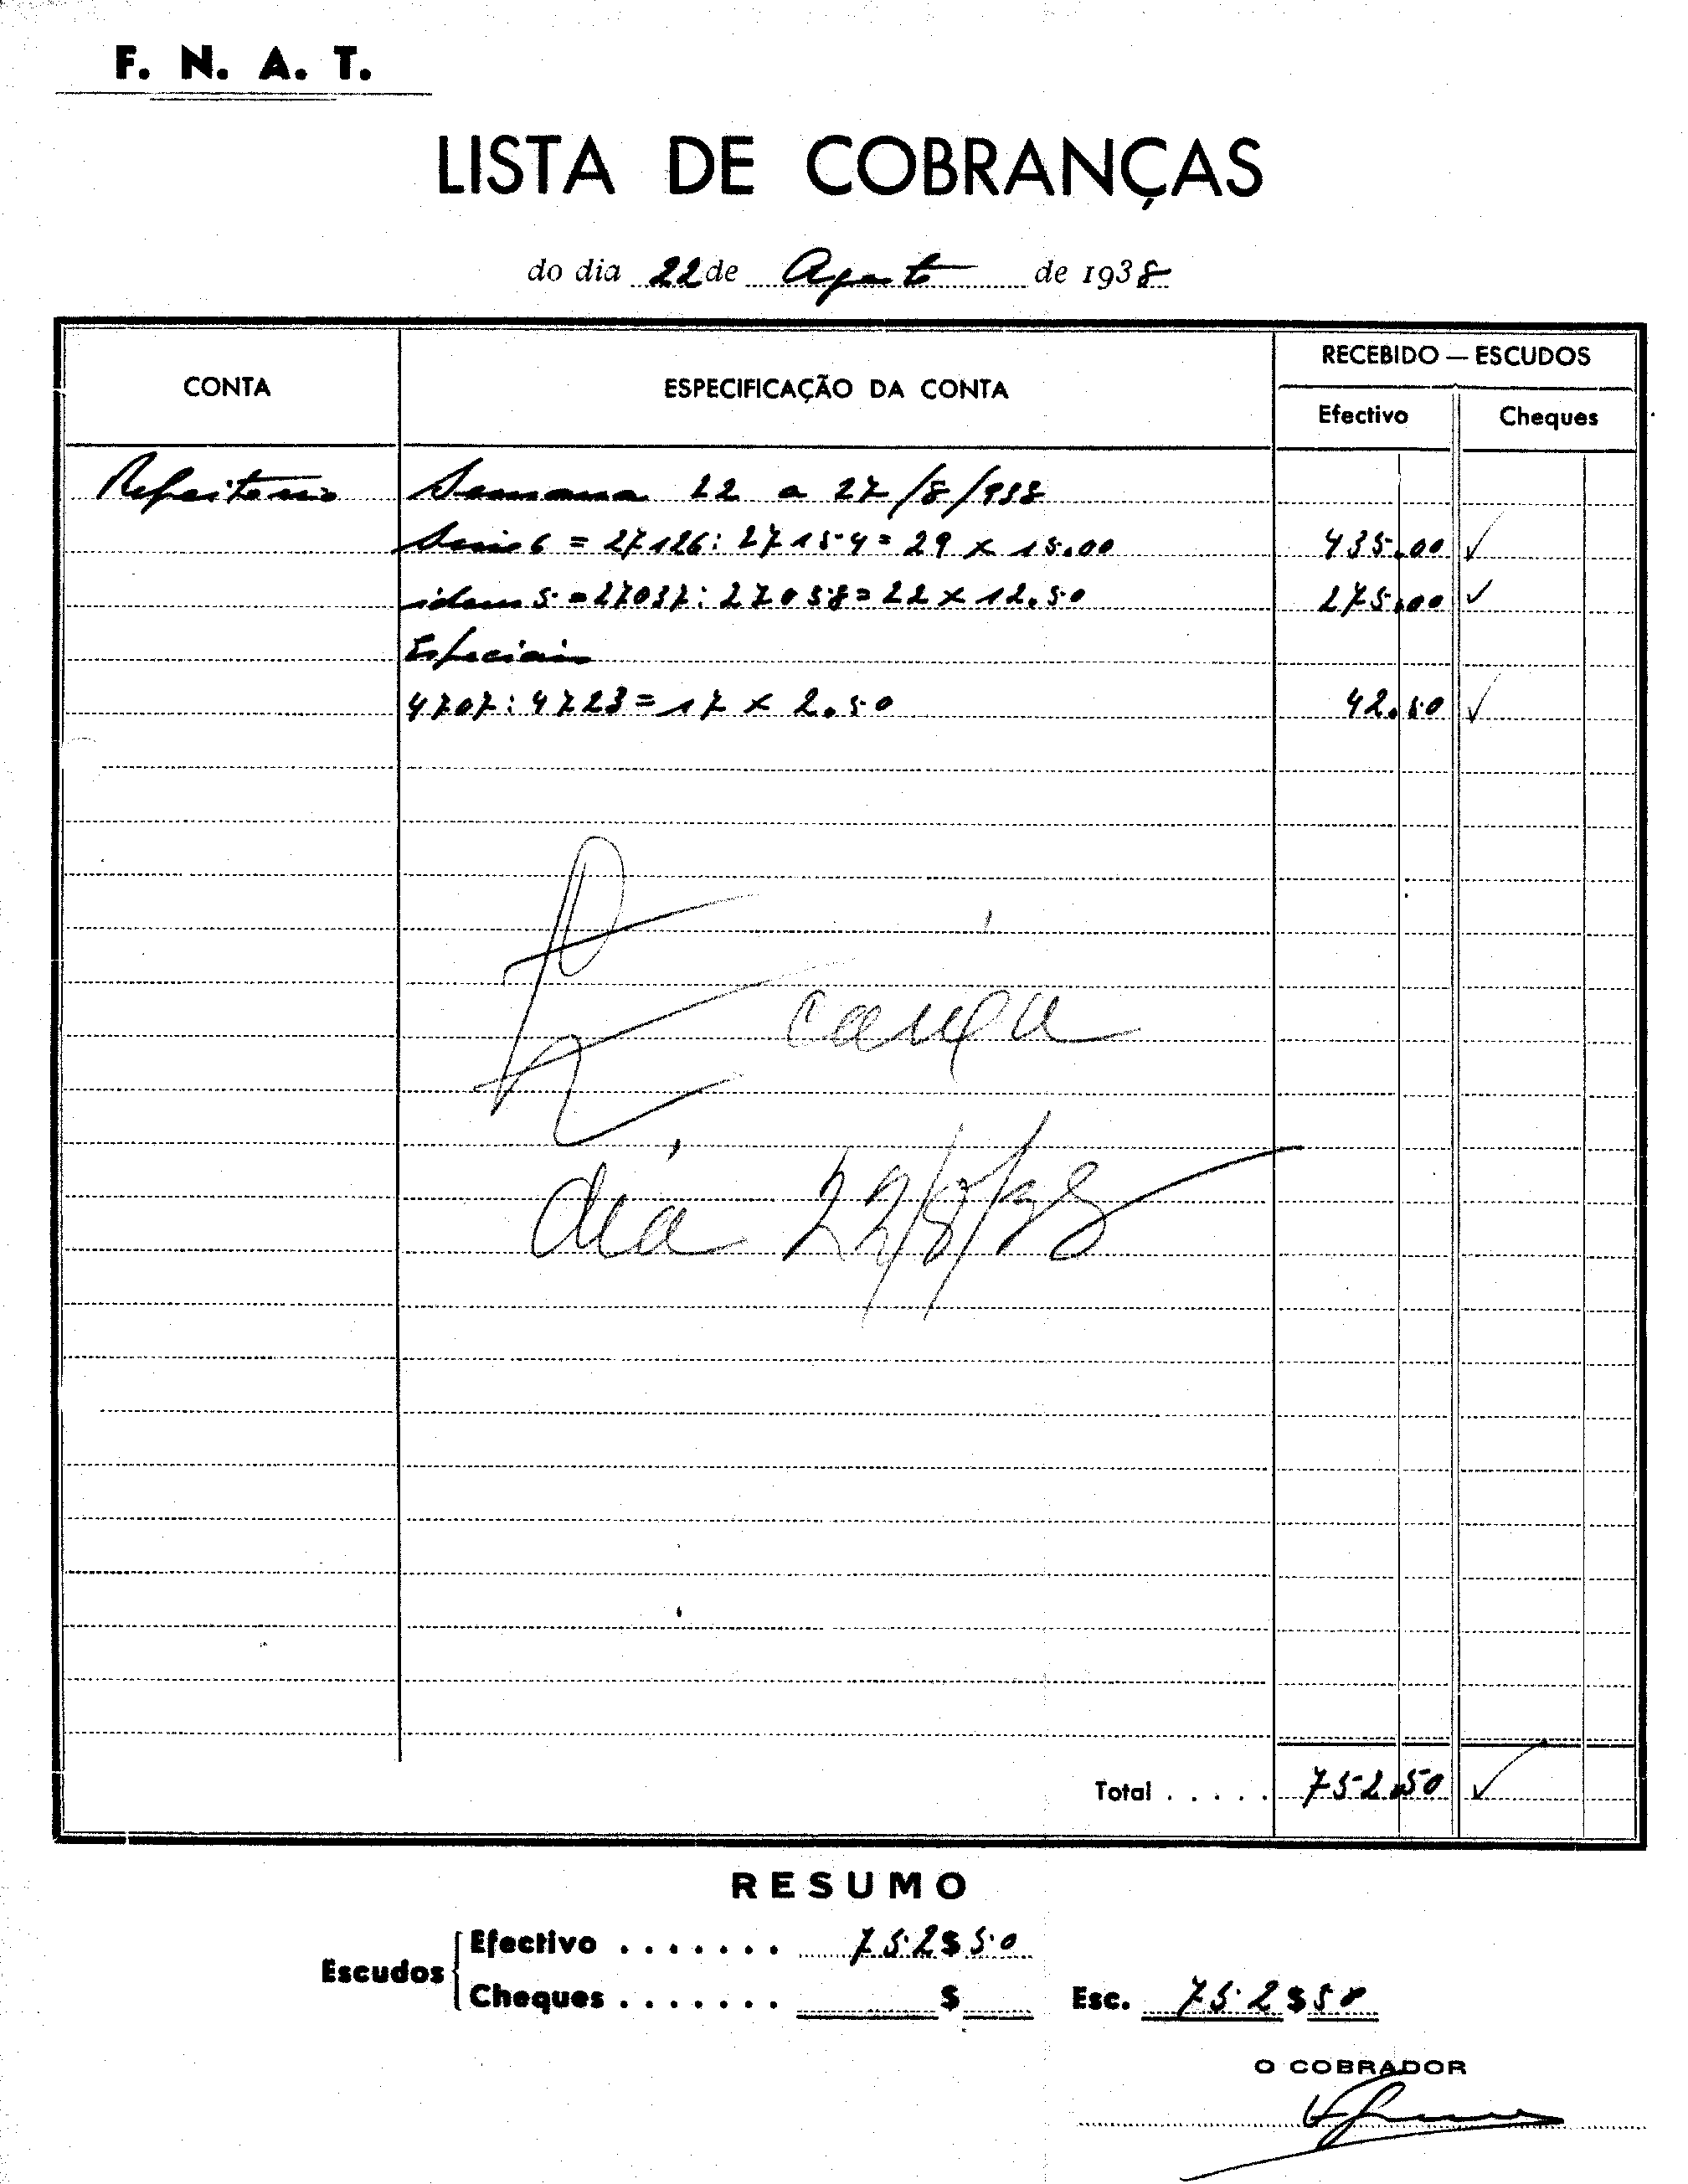 F. N. A. T.
LISTA DE COBRANÇAS
do dia 22 de Agosto de 1938
CONTA
ESPECIFICAÇÃO DA CONTA
RECEBIDO — ESCUDOS
Efectivo
Cheques
Refeitorio Semana 22 a 27/8/938
Serie 6 = 27126: 27154 = 29 x 15.00 435.00 ✓
idem 5 = 27037: 27058 = 22 x 12.50 275.00 ✓
Especiais
4707: 4723 = 17 x 2.50 42.50 ✓
caixa
dia 22/8/38
Total . . . . . 752.50 ✓
RESUMO
Escudos
Efectivo . . . . . . . 752$50
Cheques . . . . . . . $
Esc. 752$50
O COBRADOR